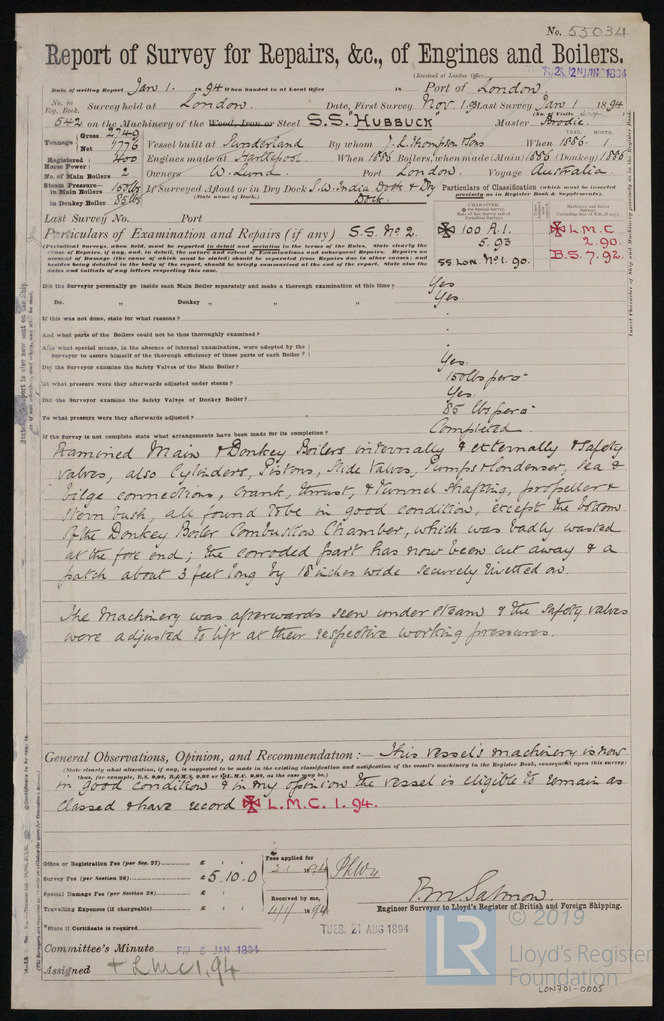 No. 55034
Report of Survey for Repairs, &c., of Engines and Boilers.
(Received at London Office
TUES. 2 JAN 1894
Date of writing Report Jan 1. 1894 When handed in at Local Office 18 Port of London.
No. in Reg. Book. Survey held at London. Date, First Survey Nov. 1. 93 Last Survey Jan 1 1894
(No. of Visits
542 on the Machinery of the Wood, Iron or Steel S.S. "Hubbuck" Master Brodie
Tonnage Gross 2749 Net 1776 Vessel built at Sunderland By whom J. L. Thompson & Sons When 1886. 1
YEAR. MONTH.
Registered Horse Power 400 Engines made at Hartlepool When 1886 Boilers, when made (Main) 1886 (Donkey) 1886
No. of Main Boilers 2 Owners W. Lund. Port London. Voyage Australia.
Steam Pressure in Main Boilers 150 lbs If Surveyed Afloat or in Dry Dock S.W. India Dock & Dry Dock.
in Donkey Boiler 85 lbs (State name of Dock.)
Particulars of Classification (which must be inserted precisely as in Register Book & Supplements).
Last Survey No. Port
Particulars of Examination and Repairs (if any) S.S. No 2.
✠ 100 A.1.
5.93
SS. Lon. No. 1. 90.
✠ L.M.C
2.90.
B.S. 7.92.
(Periodical Surveys, when held, must be reported in detail and seriatim in the terms of the Rules. State clearly the
cause of Repairs, if any, and, in detail, the nature and extent of Examinations and subsequent Repairs. Repairs on
account of Damage (the cause of which must be stated) should be separated from Repairs due to other causes; and
besides being detailed in the body of the report, should be briefly summarised at the end of the report. State also the
dates and initials of any letters respecting this case.
Did the Surveyor personally go inside each Main Boiler separately and make a thorough examination at this time? Yes
Do. " Donkey " " " Yes.
If this was not done, state for what reasons?
And what parts of the Boilers could not be thoroughly examined?
Also what special means, in the absence of internal examination, were adopted by the
Surveyor to assure himself of the thorough efficiency of those parts of each Boiler?
Did the Surveyor examine the Safety Valves of the Main Boiler? Yes.
At what pressure were they afterwards adjusted under steam? 150 lbs per □"
Did the Surveyor examine the Safety Valves of Donkey Boiler? Yes.
To what pressure were they afterwards adjusted? 85 lbs per □"
If the Survey is not complete state what arrangements have been made for its completion? Completed
Examined Main & Donkey Boilers internally & externally & safety
valves, also Cylinders, Pistons, Slide Valves, Pumps & Condenser, Sea &
bilge connections, crank, thrust, & tunnel shafting, propeller &
stern bush, all found to be in good condition, except the bottom
of the Donkey Boiler Combustion Chamber, which was badly wasted
at the fore end; the corroded part has now been cut away & a
patch about 3 feet long by 18 inches wide securely rivetted on.
The Machinery was afterwards seen under steam & the safety valves
were adjusted to lift at their respective working pressures.
General Observations, Opinion, and Recommendation:— This vessel's machinery is now
(State clearly what alteration, if any, is suggested to be made in the existing classification and notification of the vessel's machinery in the Register Book, consequent upon this survey;
thus, for example, B.S. 9.92, B.&M.S. 9.92 or ✠L.M.C. 9.92, as the case may be.)
in good condition & in my opinion the vessel is eligible to remain as
classed & have record ✠ L.M.C. 1. 94.
Office or Registration Fee (per Sec. 27) £ : :
Survey Fee (per Section 28) £ 5.10.0
Special Damage Fee (per Section 28) £ : :
Travelling Expenses (if chargeable) £ : :
Fees applied for
2.1 1894
Received by me,
4/1/1894
*State if Certificate is required
F. M. Salmon
Engineer Surveyor to Lloyd's Register of British and Foreign Shipping.
TUES. 21 AUG 1894
Committee's Minute FRI 5 JAN 1894
Assigned + LMC 1.94
LR
© 2019
Lloyd's Register
Foundation
LON701-0005